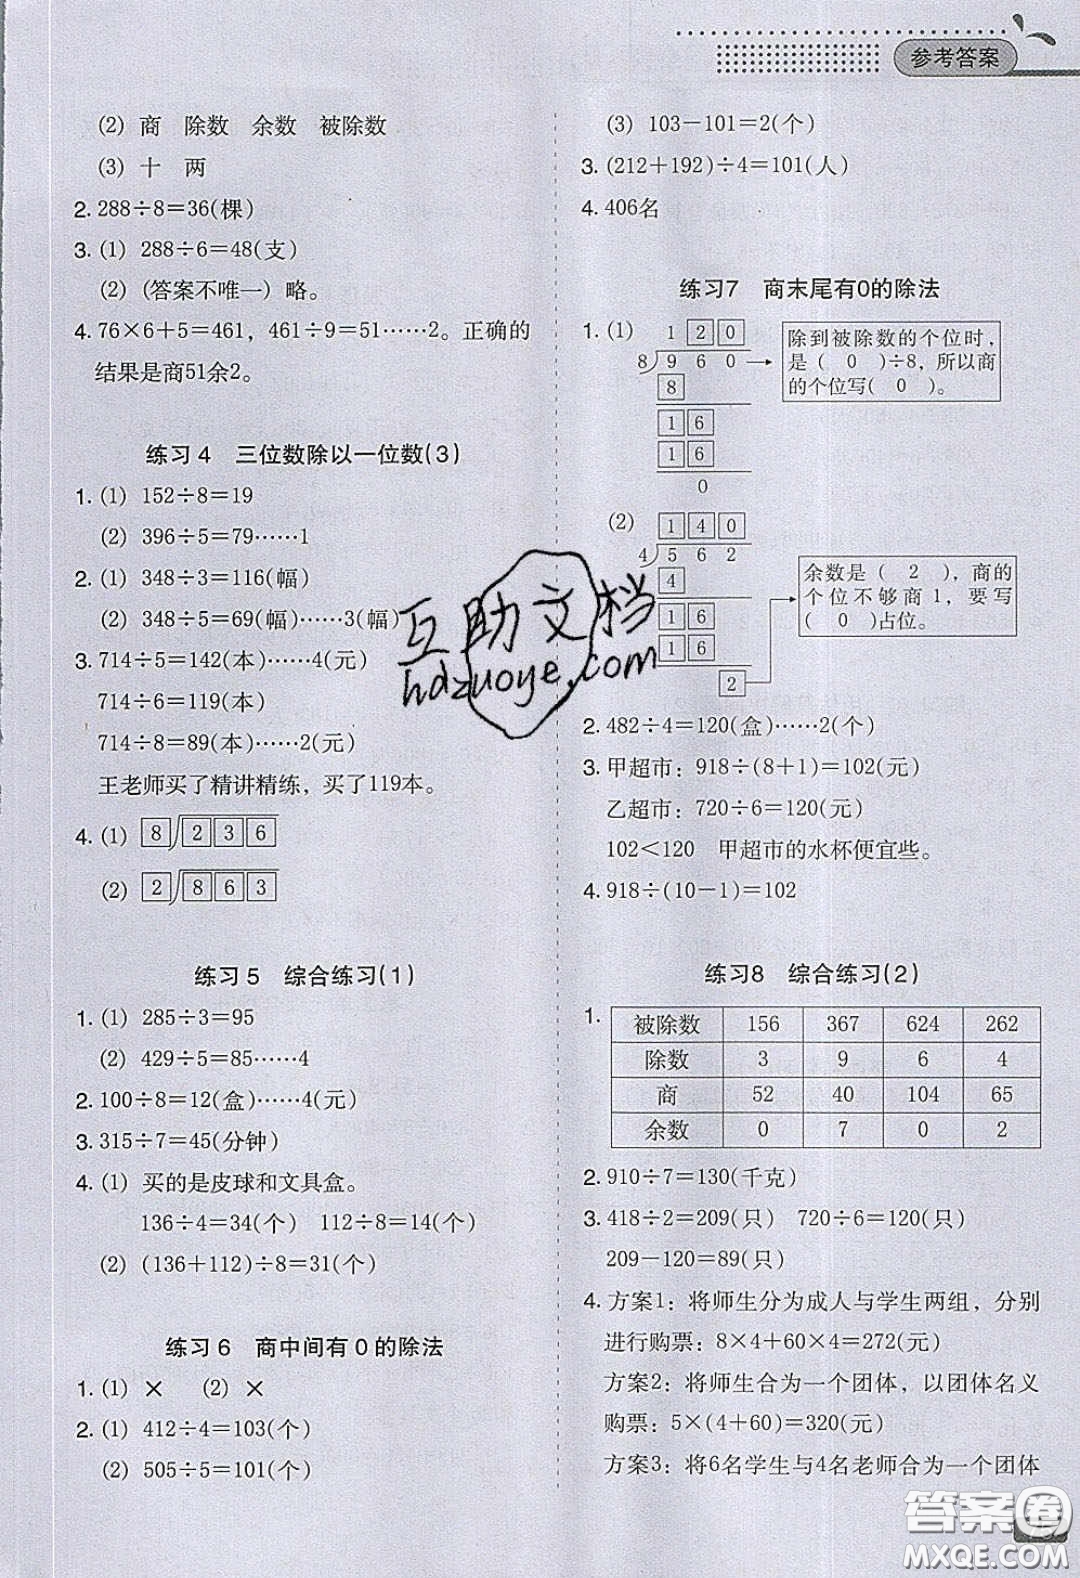 参考答案
(2) 商 除数 余数 被除数
(3) 十 两
2. 288÷8=36(棵)
3. (1) 288÷6=48(支)
(2) (答案不唯一) 略。
4. 76×6+5=461，461÷9=51……2。正确的
结果是商51余2。
练习4 三位数除以一位数(3)
1. (1) 152÷8=19
(2) 396÷5=79……1
2. (1) 348÷3=116(幅)
(2) 348÷5=69(幅)……3(幅)
3. 714÷5=142(本)……4(元)
714÷6=119(本)
714÷8=89(本)……2(元)
王老师买了精讲精练，买了119本。
4. (1) 8 2 3 6
(2) 2 8 6 3
练习5 综合练习(1)
1. (1) 285÷3=95
(2) 429÷5=85……4
2. 100÷8=12(盒)……4(元)
3. 315÷7=45(分钟)
4. (1) 买的是皮球和文具盒。
136÷4=34(个) 112÷8=14(个)
(2) (136+112)÷8=31(个)
练习6 商中间有0的除法
1. (1) × (2) ×
2. (1) 412÷4=103(个)
(2) 505÷5=101(个)
(3) 103-101=2(个)
3. (212+192)÷4=101(人)
4. 406名
练习7 商末尾有0的除法
1. (1) 1 2 0
8 9 6 0
8
1 6
1 6
0
除到被除数的个位时，
是( 0 )÷8，所以商
的个位写( 0 )。
(2) 1 4 0
4 5 6 2
4
1 6
1 6
2
余数是( 2 )，商的
个位不够商1，要写
( 0 )占位。
2. 482÷4=120(盒)……2(个)
3. 甲超市：918÷(8+1)=102(元)
乙超市：720÷6=120(元)
102<120 甲超市的水杯便宜些。
4. 918÷(10-1)=102
练习8 综合练习(2)
1. 被除数 156 367 624 262
除数 3 9 6 4
商 52 40 104 65
余数 0 7 0 2
2. 910÷7=130(千克)
3. 418÷2=209(只) 720÷6=120(只)
209-120=89(只)
4. 方案1：将师生分为成人与学生两组，分别
进行购票：8×4+60×4=272(元)
方案2：将师生合为一个团体，以团体名义
购票：5×(4+60)=320(元)
方案3：将6名学生与4名老师合为一个团体
互助文档
hdzuoye.com
答案圈
MXQE.COM